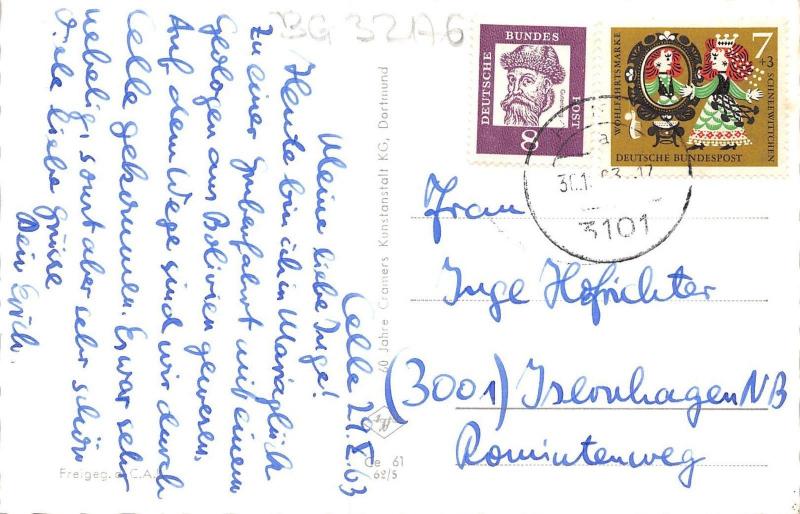 BG 32A6
Celle 29.X.63
Meine liebe Inge!
Heute bin ich in Mariaglück
zu einer Grubenfahrt mit einem
Geologen aus Bolivien gewesen.
Auf dem Wege sind wir durch
Celle gekommen. Es war sehr
nebelig, sonst aber sehr schön
Viele liebe Grüsse
Dein Erich.
60 Jahre Cramers Kunstanstalt KG, Dortmund
Ce 61
62/5
Freigeg. d.
DEUTSCHE BUNDES POST
8
WOHLFAHRTSMARKE
7
+3
SCHNEEWITTCHEN
DEUTSCHE BUNDESPOST
3101
Frau
Inge Hofrichter
(3001) Isernhagen NB
Rominteweg